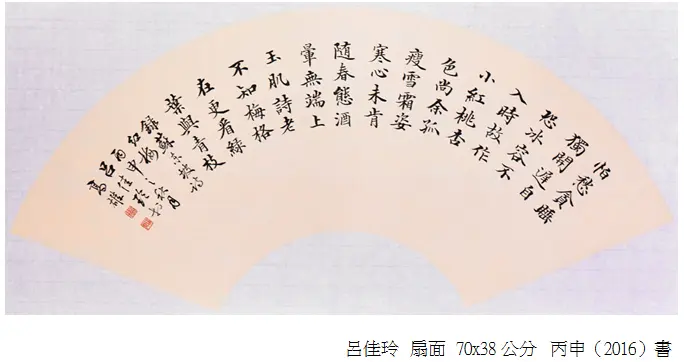 怕愁貪睡
獨開遲自
恐冰容不
入時故作
小紅桃杏
色尚余孤
瘦雪霜姿
寒心未肯
随春態酒
暈無端上
玉肌詩老
不知梅格
在更看綠
葉與青枝
錄蘇東坡詩
紅梅之一
丙申秋月
呂佳玲書
高雄
呂佳玲 扇面 70x38公分 丙申（2016）書